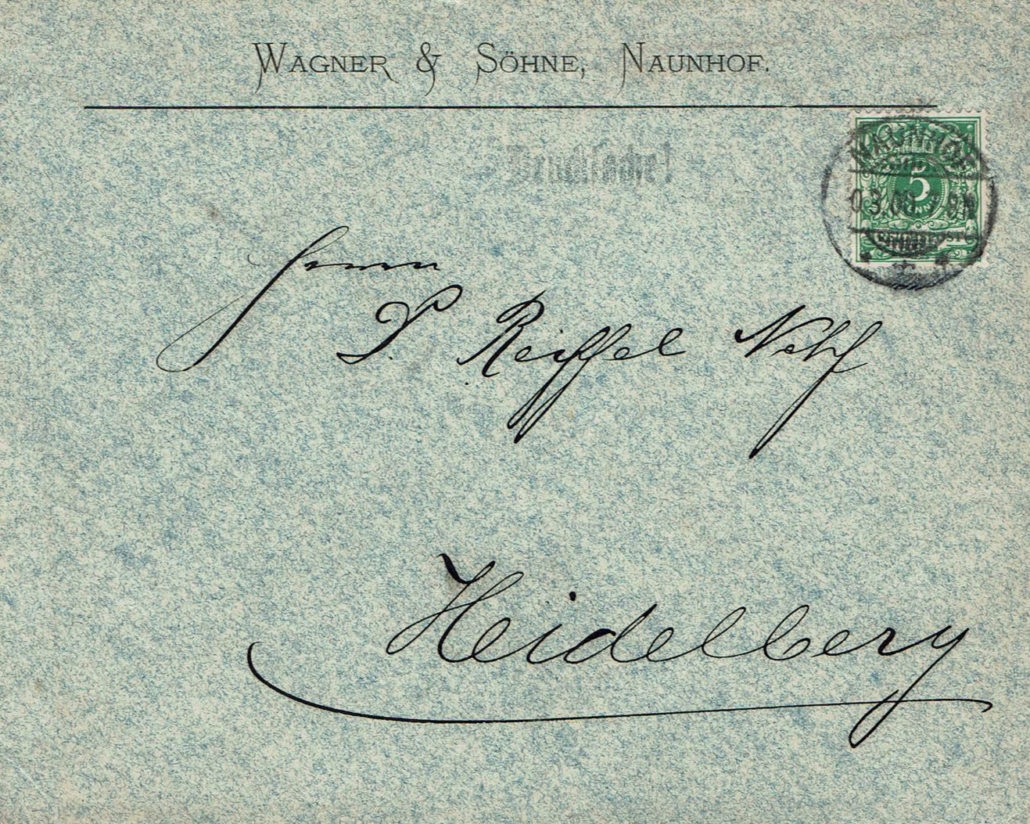 WAGNER & SÖHNE, NAUNHOF.
Drucksache!
NAUNHOF
5
Herrn
L. Reiffel Nchf
Heidelberg